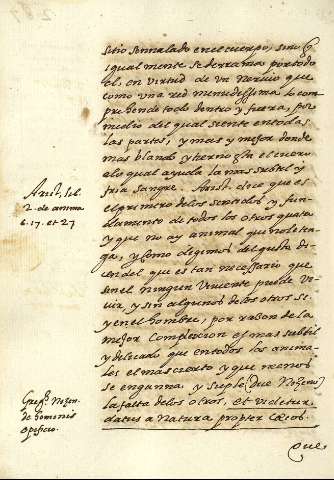 sitio sennalado en el cuerpo, sino q̃
igualmente se derrama por todo
el, en virtud de un Nervio que
como una red menudissima lo com
prehende todo dentro y fuera, por
medio del qual siente en todas
las partes, y mas y mejor donde
mas blando y tierno esta el cuero
a lo qual ayuda la mas subtil y
fria sangre. Arist. dice que es
el primero de los sentidos y fun
damento de todos los otros quatro
y que no ay animal que no le ten
ga, y como algunos del gusto di
cen del que es tan necessario que
sin el ningun viviente puede vi
vir, y sin algunos de los otros sy
y en el hombre, por rason de la
mejor Complexion es mas subtil
y delicado que en todos los anima
les el mas cierto y que menos
se enganna y suple (Due Noseno)
la falta de los otros, et videtur
datus a Natura propter Cæcos.
Que
Arist. lib.
2. de anima
c. 17. et 27
Greg.º Nizen.
de hominis
opificio.